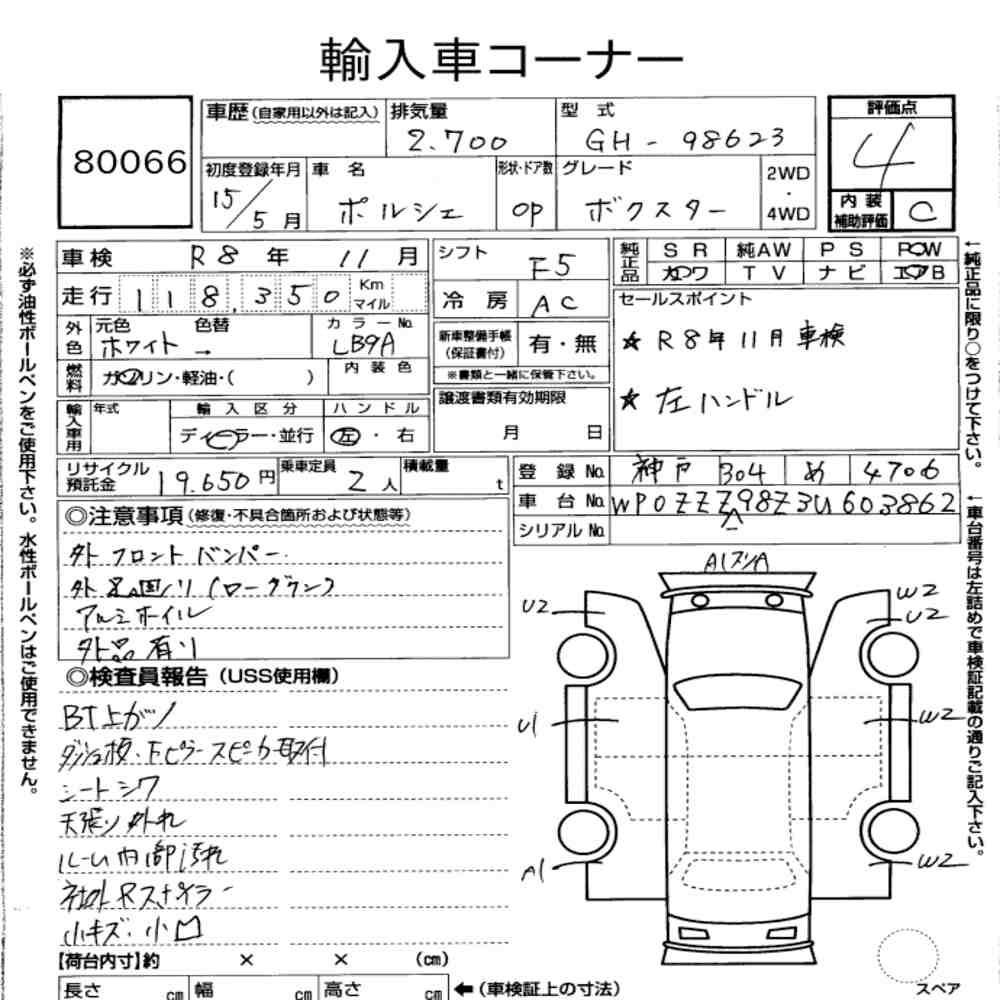 輸入車コーナー
80066
車歴(自家用以外は記入) 排気量 2.700 型式 GH-98623
評価点 4
初度登録年月 15/5月 車名 ポルシェ 形状・ドア数 OP グレード ボクスター 2WD・4WD
内装補助評価 C
車検 R8年 11月
シフト F5
純正品 SR 純AW PS POW
カワ TV ナビ エアB
走行 118,350 Km マイル
冷房 AC
セールスポイント
外色 元色 ホワイト 色替 → カラーNo. LB9A
新車整備手帳(保証書付) 有・無
★ R8年11月車検
※書類と一緒に保管下さい。
燃料 ガソリン・軽油・( ) 内装色
★ 左ハンドル
譲渡書類有効期限 月 日
輸入車用 年式 輸入区分 ハンドル
ディーラー・並行 左・右
リサイクル預託金 19.650円 乗車定員 2人 積載量 t
登録No. 神戸 304 め 4706
車台No. WP0ZZZ98Z3U603862
シリアルNo.
◎注意事項(修復・不具合箇所および状態等)
外フロントバンパー
アルミホイル
外品有り
◎検査員報告(USS使用欄)
BT上がり
シートシワ
天張り外れ
ルーム内部汚れ
社外Rスポイラー
小キズ・小凹
【荷台内寸】約 × × (cm)
長さ cm 幅 cm 高さ cm ←(車検証上の寸法)
U2
W2
U2
U1
W2
A1
W2
スペア
※必ず油性ボールペンをご使用下さい。水性ボールペンはご使用できません。
←純正品に限り○をつけて下さい。
←車台番号は左詰めで車検証記載の通りご記入下さい。